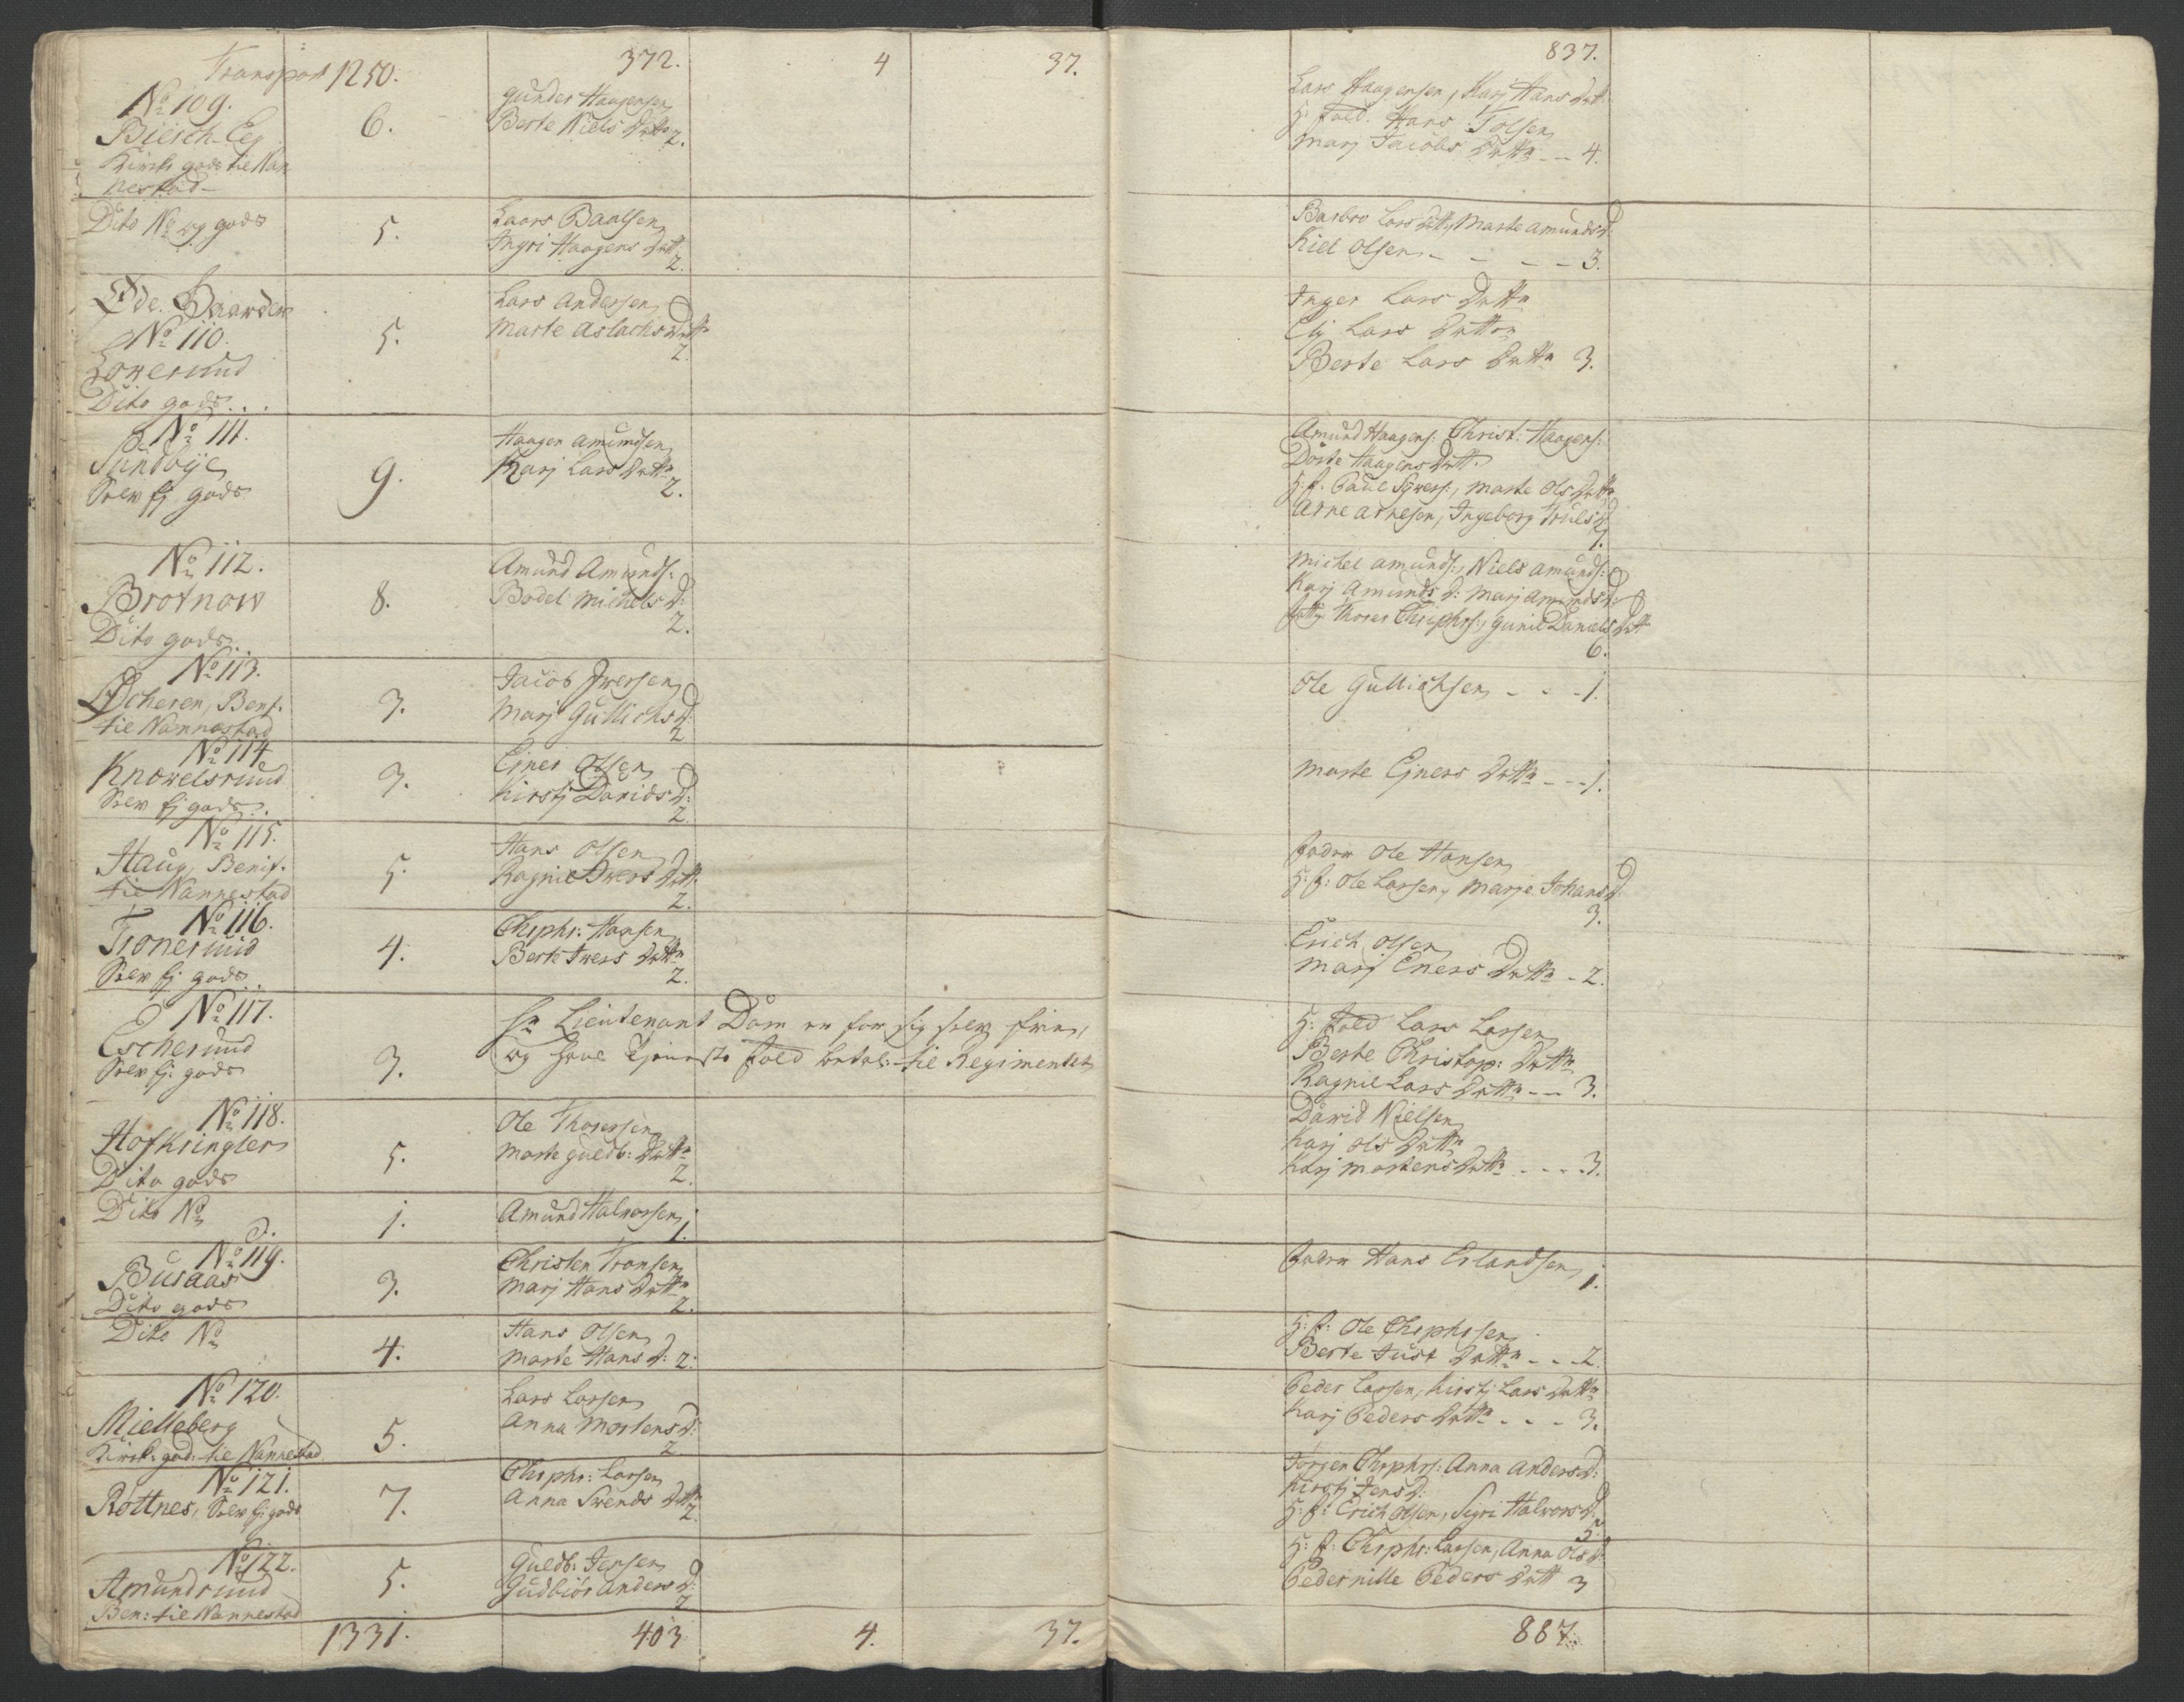 Transport 1250. 372. 4 37. 837.
No 109.
Biesch-Eeg
Kirch gods til Nan
nestad
6.
Gunder Haagensen
Berte Niels Dattr
2.
Lars Haagensen, Karj Hans Datt.
H: fold. Hans Tolsen
Marj Jacobs Dattr - - 4.
Dito No og gods
5.
Laars Baalsen
Ingri Haagens Datt
2.
Barbro Lars Datt, Marte Amunds D
Kiel Olsen - - - - 3.
Øde Gaarden
No 110.
Lowerund
Dito gods . . .
5.
Lars Andersen
Marte Aslachs Dattr
2.
Inger Lars Dattr
Elj Lars Datter
Berte Lars Dattr 3.
No 111.
Sundbye
Selv Ej. gods
9.
Haagen Amundsen
Karj Lars Dattr
2.
Amund Haagens: Christ: Haagens:
Dorte Haagens Datt.
H: f. Paul Sywers:, Marte Ols Dattr
Arne Arnesen, Ingeborg Truls D
7.
No 112.
Brotnow
Dito gods . .
8.
Amund Amunds:
Bodel Michels D:
2.
Michel Amunds:, Niels Amunds:
Karj Amunds D: Marj Amunds D:
Thorer Chriphrs:, Gunil Daniels Datt
6.
No 113.
Ascheren, Benf.
til Nannestad
3.
Jacob Iwersen
Marj Gullichs D:
2
Ole Gullichsen - - - 1.
No 114
Knowelsrund
Selv Ej gods . .
3.
Ejner Olsen
Kirstj Davids D:
2.
Marte Ejners Dattr - - - 1.
No 115.
Haug, Benif.
til Nannestad
5.
Hans Olsen
Ragnil Iwers Datt
2.
Fader Ole Hansen
H: f: Ole Larsen, Marje Johans D:
3.
No 116.
Tronerund
Selv Ej. gods . .
4.
Chrphr: Hansen
Berte Iwers Dattr
2.
Erich Olsen
Marj Eners Dattr - 2.
No 117.
Escherund
Selv Ej: gods
3.
Hr Lieutenant Dam er for sig selv frie,
og hans tjeneste fold betal: til Regimentet
H: fold Lars Larsen
Berte Christop: Dattr
Ragnil Lars Dattr - - 3.
No 118.
Hofkringlen
Dito gods
5.
Ole Thorersen
Marte Guldb: Dattr
2.
David Nielsen
Karj Ols Dattr
Karj Mortens Dattr - - - 3.
Dito No
1.
Amund Halvorsen
1.
No 119.
Busaas
Dito gods
3.
Christen Tronsen
Marj Hans Dattr
2.
Fader Hans Erlandsen
1.
Dito No
4.
Hans Olsen
Marte Hans D: 2:
H: f: Ole Chrphrsen
Berte Just Dattr - - - 2.
No 120.
Mielleberg
Kirck: god: til Nannestad
5.
Lars Larsen
Anna Mortens D:
2
Peder Larsen, Kirstj Lars Dattr
Karj Peders Dattr - - - 3.
No 121.
Rottnes, Selv Ej gods
7.
Chrphr: Larsen
Anna Swends Dattr
2.
Jörgen Chrphrs: Anna Anders D:
Kirstj Jens D:
H: f: Erich Olsen, Sigri Halwors D:
5.
No 122.
Amundrund
Ben: til Nannestad
5.
Guldb: Jensen
Gudbiör Anders D:
2
H: f: Chrphr: Larsen, Anna Ols D:
Pedernille Peders Datt 3
1331. 403 4. 37. 887.